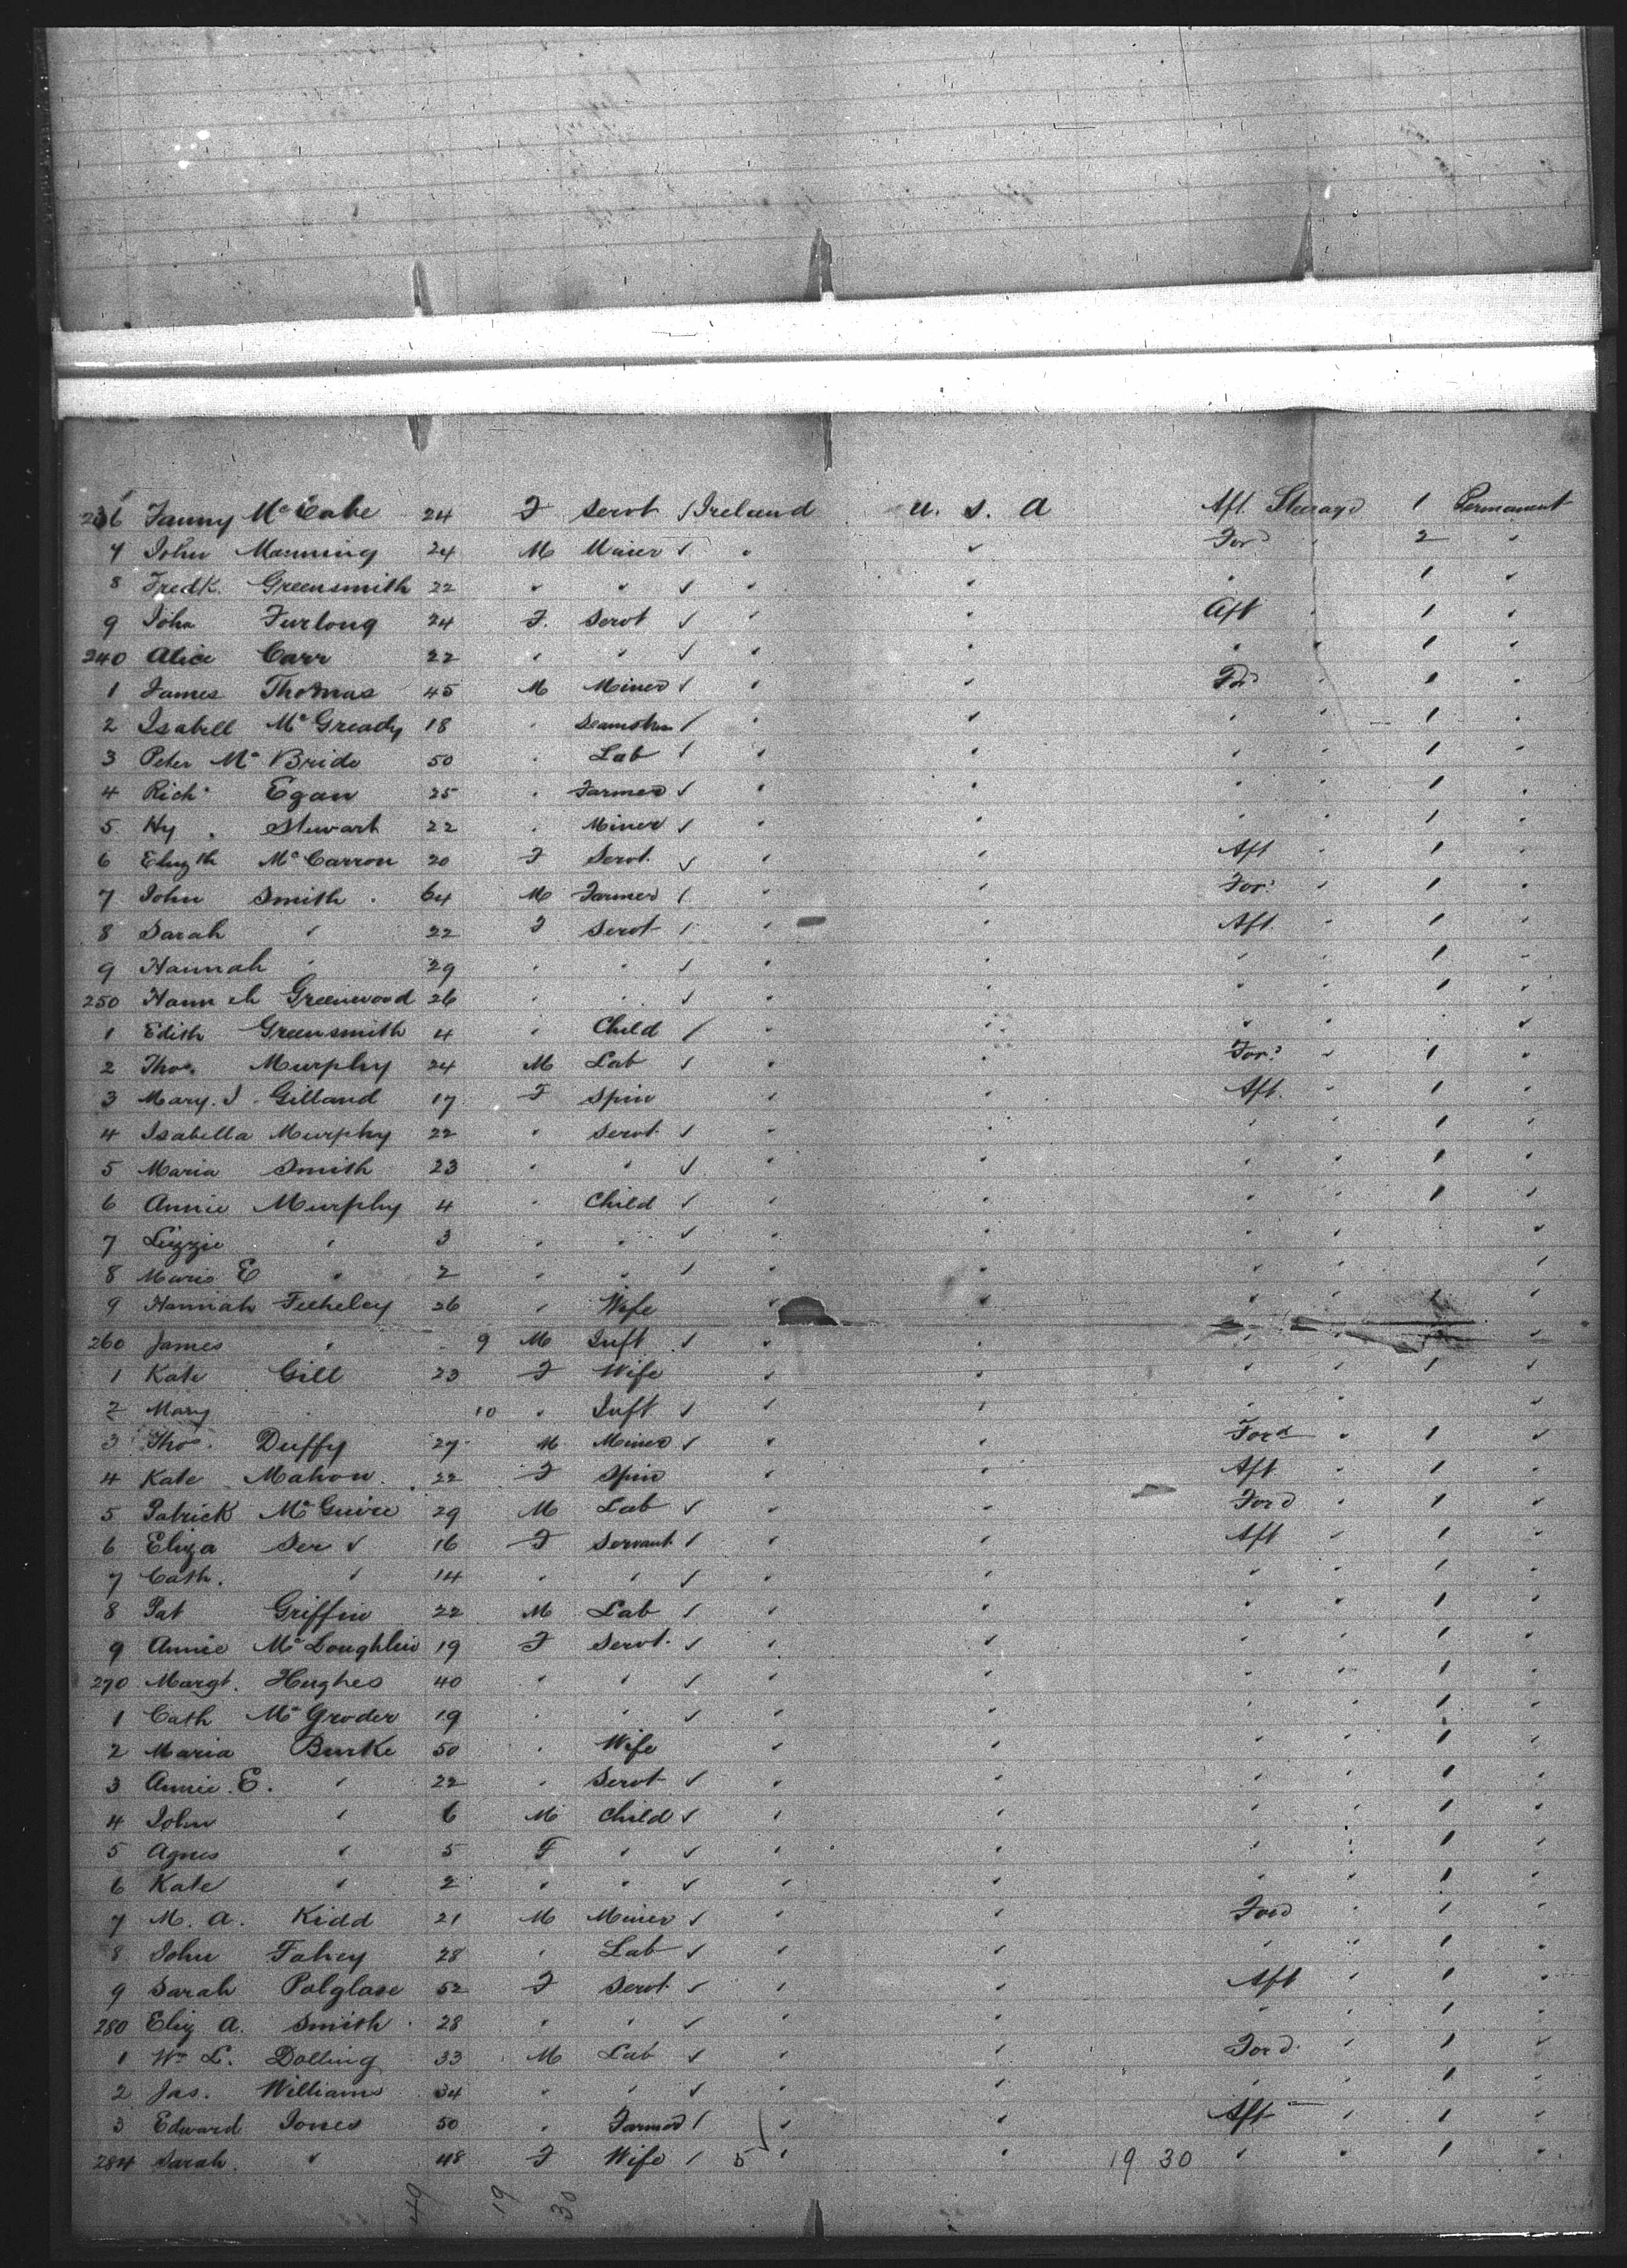 236 Fanny McCabe 24 F Servt / Ireland U. S. A Aft Steerage 1 Permanent
7 John Manning 24 M Miner √ " " Ford " 2 "
8 Fredk. Greensmith 22 " " √ " " " 1 "
9 John Furlong 24 F. Servt √ " " Aft " 1 "
240 Alice Carr 22 " " √ " " " " 1 "
1 James Thomas 45 M Miner √ " " For " 1 "
2 Isabell McGready 18 " Seamstress / " " " " 1 "
3 Peter McBride 50 " Lab √ " " " " 1 "
4 Richd Egan 25 " Farmer √ " " " " 1 "
5 Hy. Stewart 22 " Miner √ " " " " 1 "
6 Elizth McCarron 20 F Servt. √ " " Aft " 1 "
7 John Smith 64 M Farmer / " " For. " 1 "
8 Sarah " 22 F Servt / " " Aft. " 1 "
9 Hannah " 29 " " √ " " " " 1 "
250 Hannah Greenwood 26 " " √ " " " " 1 "
1 Edith Greensmith 4 " Child / " " " " "
2 Thos. Murphy 24 M Lab √ " " Ford " 1 "
3 Mary. J. Gilland 17 F Spin " " Aft. " 1 "
4 Isabella Murphy 22 " Servt. √ " " " " 1 "
5 Maria Smith 23 " " √ " " " " 1 "
6 Annie Murphy 4 " Child √ " " " " 1 "
7 Lizzie " 3 " " √ " " " " "
8 Marie E " 2 " " √ " " " " "
9 Hannah Feeheley 26 " Wife " " " " 1 "
260 James " 9 M Inft √ " " " " "
1 Kate Gill 23 F Wife " " " " 1 "
2 Mary 10 " Inft √ " " " "
3 Thos. Duffy 27 M Miner √ " " Ford " 1 "
4 Kate Mahon. 22 F Spin " " Aft " 1 "
5 Patrick McGuire 29 M Lab √ " " Ford " 1 "
6 Eliza 16 F Servant √ " " Aft " 1 "
7 Cath. " 14 " " √ " " " " 1 "
8 Pat Griffin 22 M Lab √ " " " " 1 "
9 Annie McLoughlin 19 F Servt. √ " " " " 1 "
270 Margt. Hughes 40 " " √ " " " " 1 "
1 Cath McGroder 19 " " √ " " " " 1 "
2 Maria Burke 50 " Wife " " " " 1 "
3 Annie. E. " 22 " Servt √ " " " " 1 "
4 John " 6 M Child √ " " " " 1 "
5 Agnes " 5 F " √ " " " " 1 "
6 Kate " 2 " " √ " " " " 1 "
7 M. A. Kidd 21 M Miner √ " " Ford " 1 "
8 John Fahey 28 " Lab √ " " " " 1 "
9 Sarah Polglase 52 F Servt. √ " " Aft " 1 "
280 Eliz A. Smith 28 " " √ " " " " 1 "
1 Wm L. Dolling 33 M Lab √ " " Ford. " 1 "
2 Jas. Williams 34 " " √ " " " " 1 "
3 Edward Jones 50 " Farmer / " " Aft " 1 "
284 Sarah. " 48 F Wife / 5 " " 19 30 " " 1 "
49 19 30